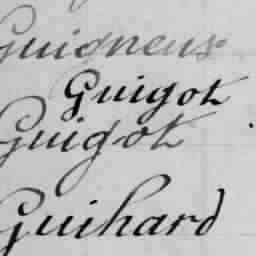 Guigneus
Guigot
Guigot
Guihard